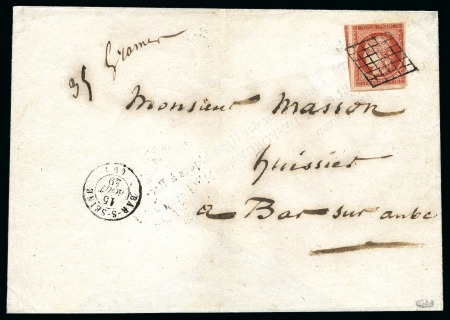 35 Grammes
Monsieur Masson
huissier
a Bar sur aube
BAR-S-SEINE
15
AOUT
49
(9)